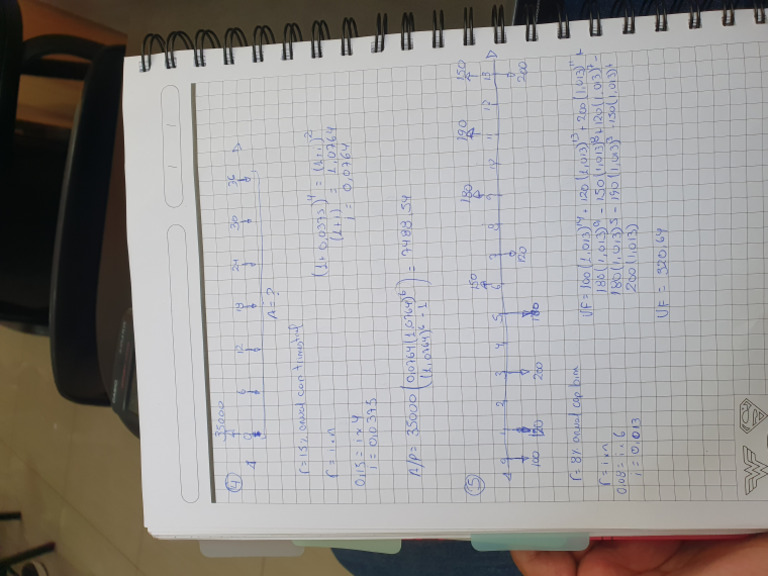 ④
35000
0 6 12 18 24 30 36
A = ?
r = 15% anual cap trimestral
r = i × n
0,15 = i × 4
i = 0,0375
(1 + 0,0375)⁴ = (1 + i)²
(1 + i) = 1,0764
i = 0,0764
A/P = 35000 (0,0764(1,0764)⁶ / (1,0764)⁶ - 1) = 7488,54
⑤
150 180 190 150
0 1 2 3 4 5 6 7 8 9 11 12 13
100 120 200 180 120 200
r = 8% anual cap bim
r = i × n
0,08 = i × 6
i = 0,013
VF = 100(1,013)¹⁴ + 120(1,013)¹³ + 200(1,013)¹¹ +
180(1,013)⁹ - 150(1,013)⁸ + 120(1,013)⁷ -
180(1,013)⁵ - 190(1,013)³ - 150(1,013)¹
200(1,013)
VF = 320,64